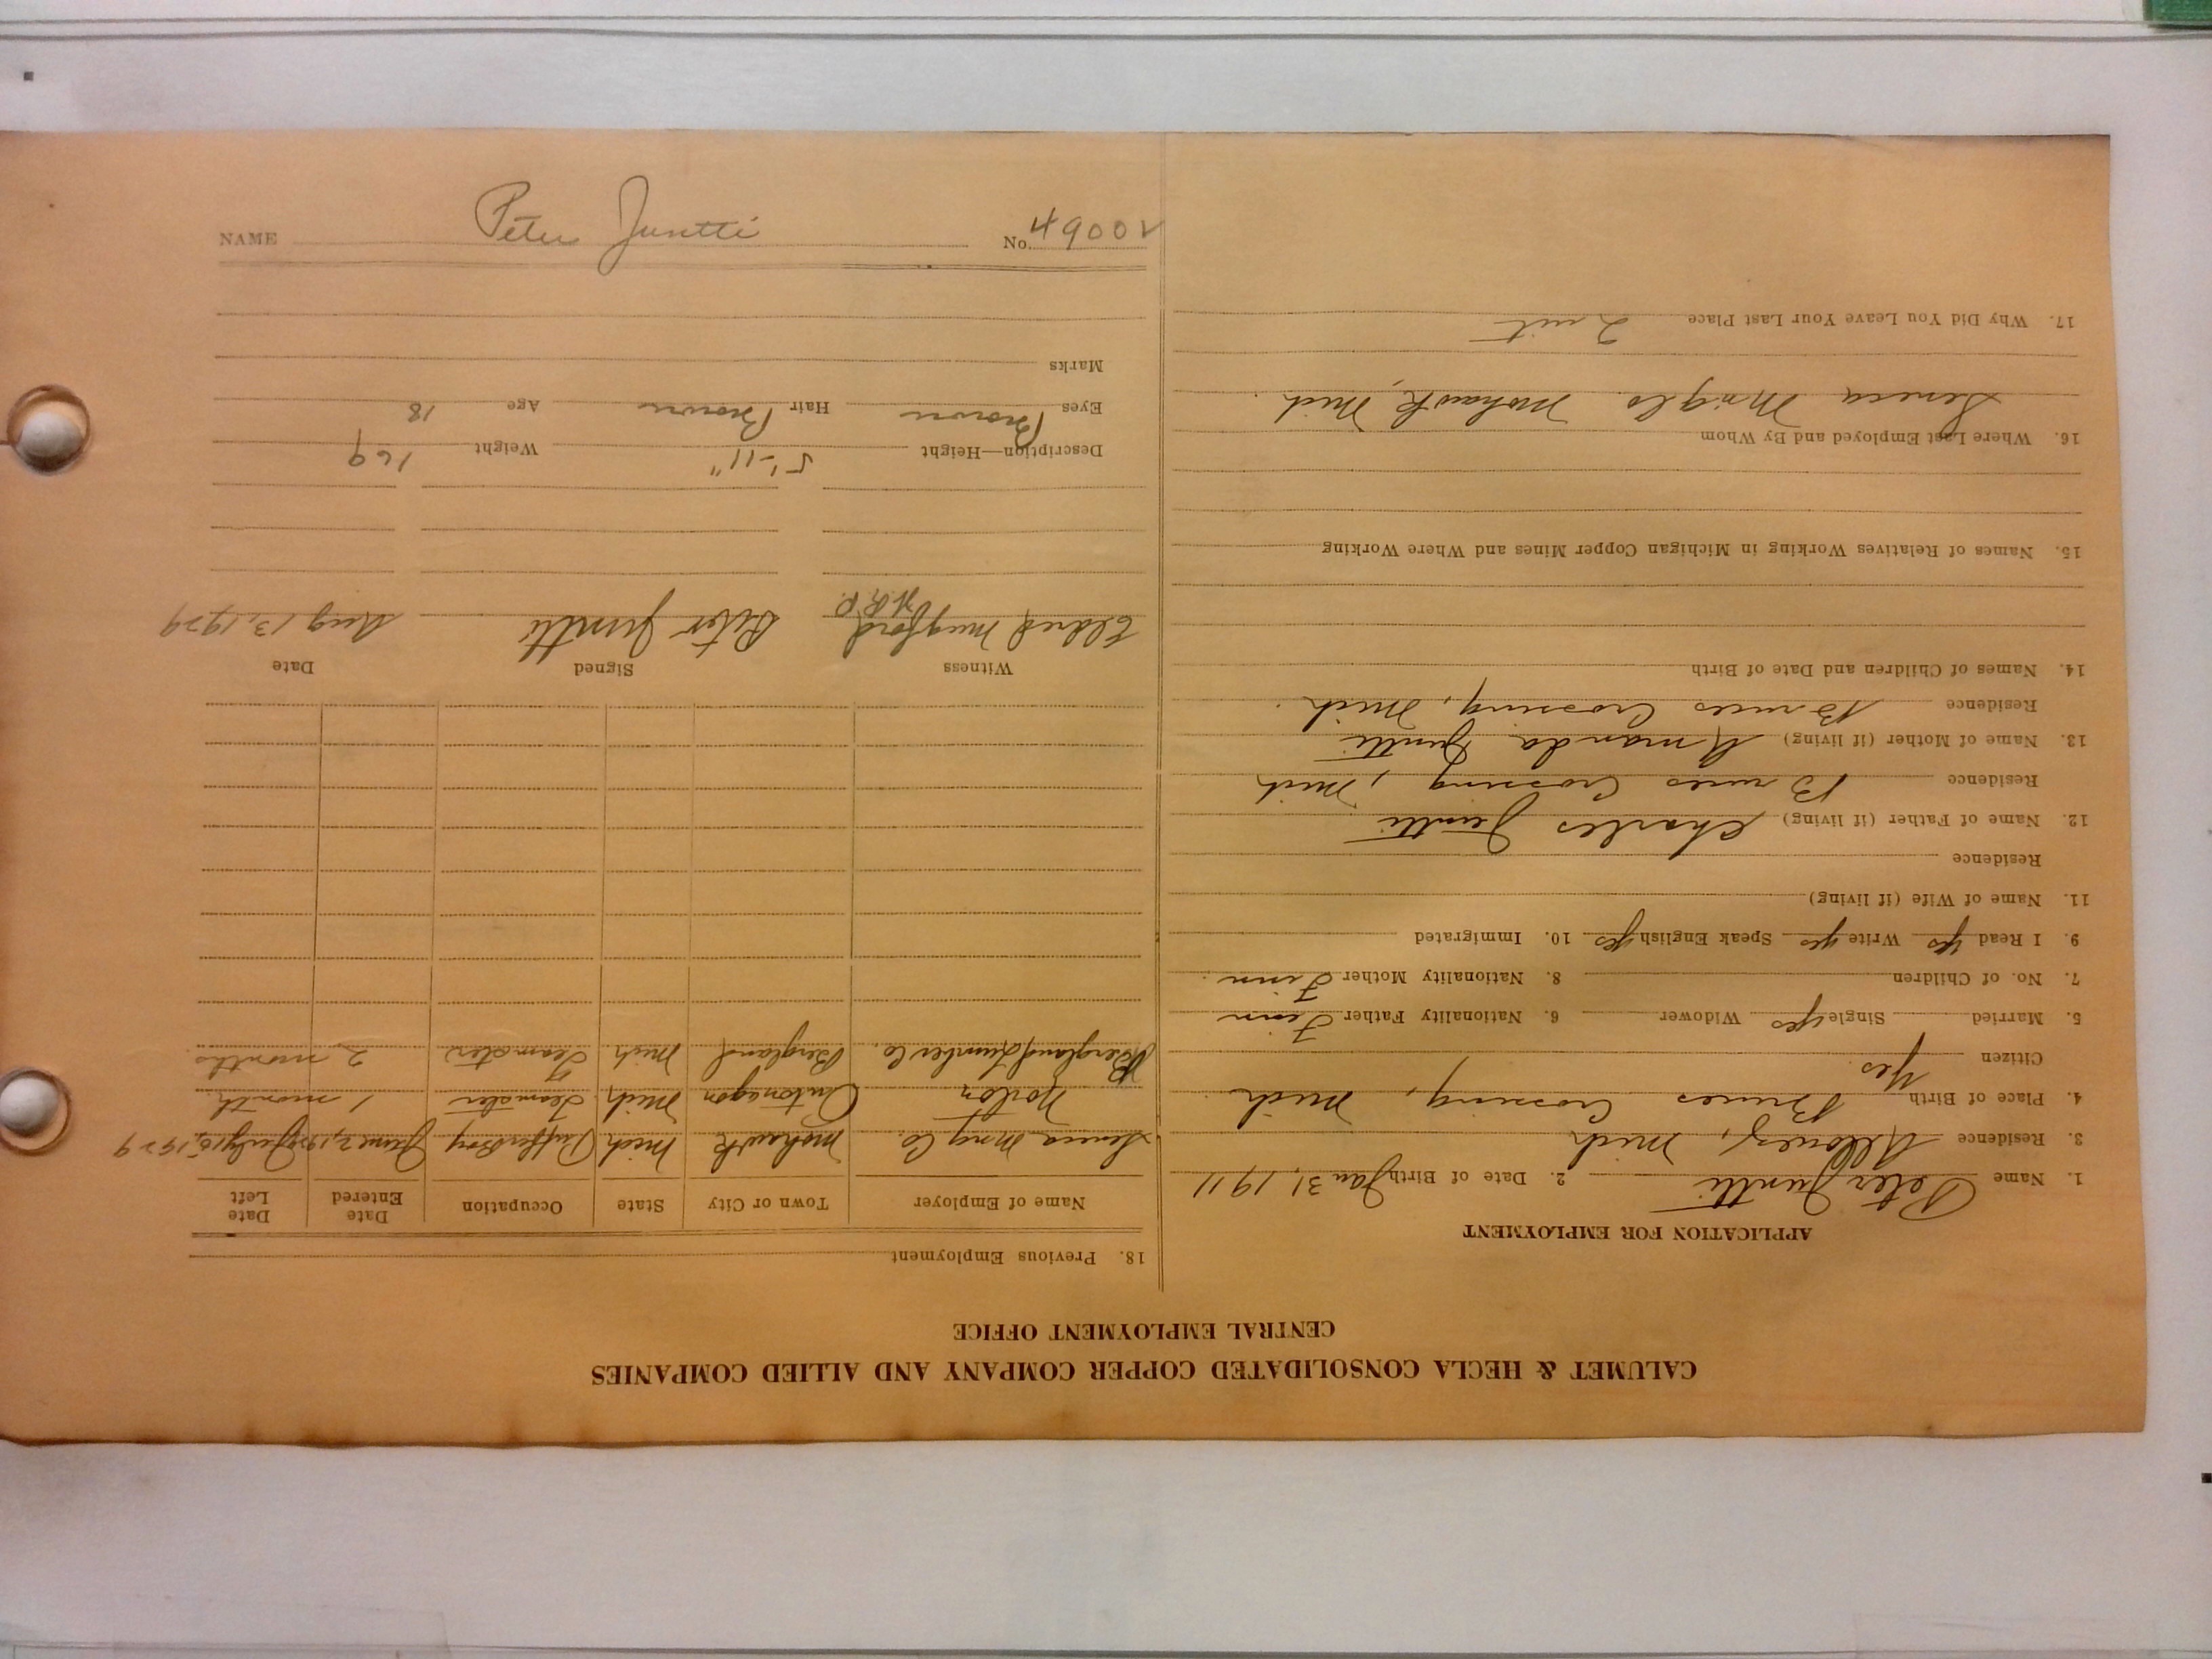 CALUMET & HECLA CONSOLIDATED COPPER COMPANY AND ALLIED COMPANIES
CENTRAL EMPLOYMENT OFFICE
APPLICATION FOR EMPLOYMENT
1. Name Peter Juntti 2. Date of Birth Jan 31, 1911
3. Residence Allouez, Mich
4. Place of Birth Bruces Crossing, Mich
Citizen Yes.
5. Married Single yes Widower 6. Nationality Father Finn
7. No. of Children 8. Nationality Mother Finn
9. I Read yes Write yes Speak English yes 10. Immigrated
11. Name of Wife (if living)
Residence
12. Name of Father (if living) Charles Juntti
Residence Bruces Crossing, Mich
13. Name of Mother (if living) Amanda Juntti
Residence Bruces Crossing, Mich.
14. Names of Children and Date of Birth
15. Names of Relatives Working in Michigan Copper Mines and Where Working
16. Where Last Employed and By Whom
Seneca Mng Co. Mohawk, Mich.
17. Why Did You Leave Your Last Place Quit
18. Previous Employment
Name of Employer Town or City State Occupation Date Entered Date Left
Seneca Mng Co. Mohawk Mich Puffer Boy June 2, 1929 July 16, 1929
Ontonagon Mich Teamster 1 month
Bergland Lumber Co. Bergland Mich. Teamster 2 months.
Witness Signed Date
Eldred Mugford Peter Juntti Aug 13, 1929
H.R.P.
Description—Height 5'-11" Weight 169
Eyes Brown Hair Brown Age 18
Marks
NAME Peter Juntti No. 49002